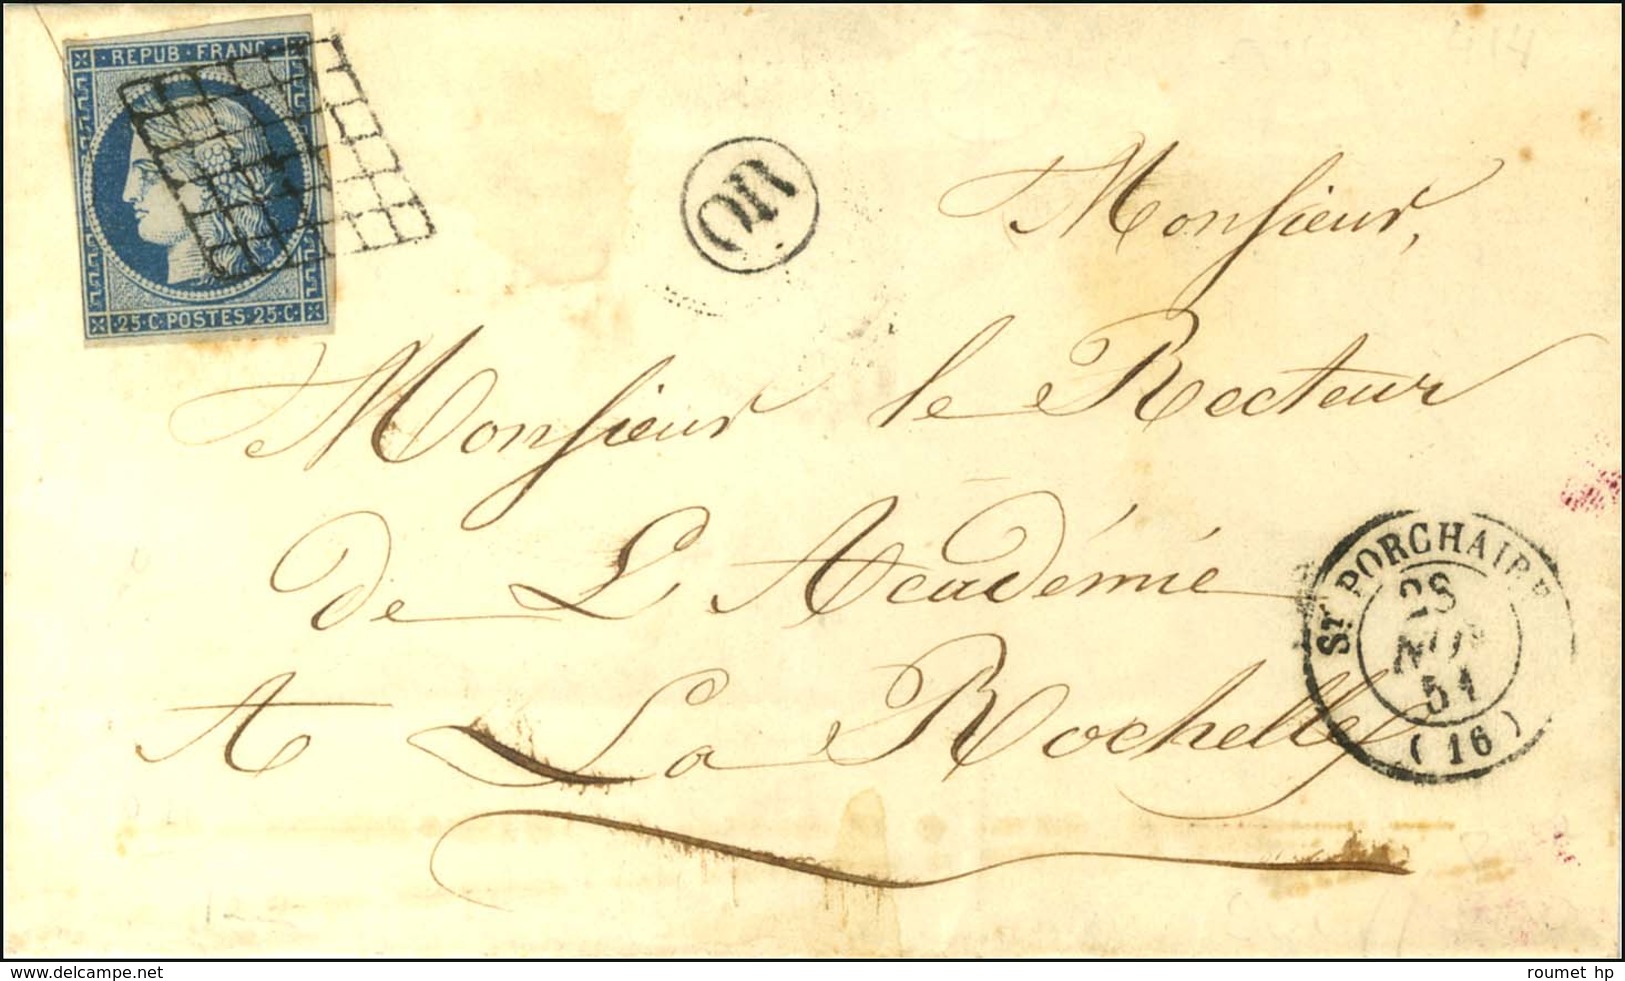 REPUB · FRANC ·
· 25 · C · POSTES · 25 · C ·
OR
Monsieur,
Monsieur le Recteur
de L'Académie
A La Rochelle
ST PORCHAIRE
28
NOV
51
(16)
www.delcampe.net
roumet hp